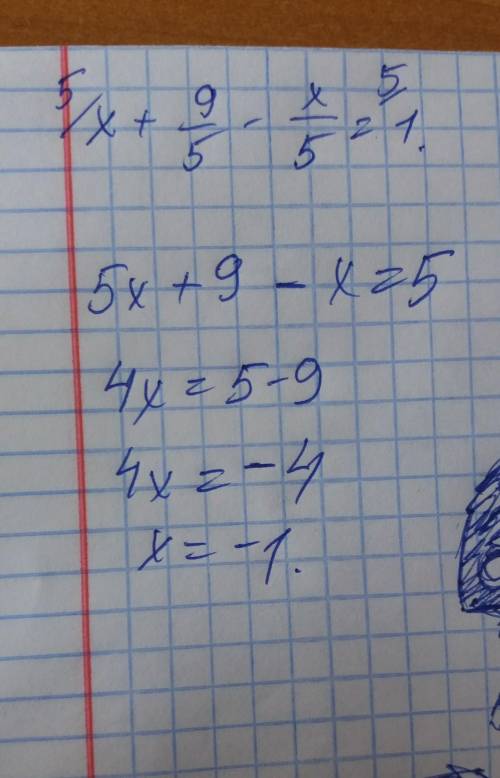 5/x + 9/5 - x/5 = 5/1.
5x + 9 - x = 5
4x = 5 - 9
4x = -4
x = -1.